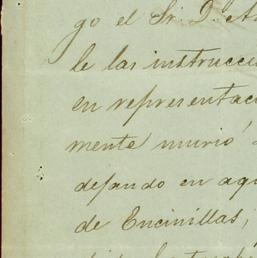 go el Sr. D. A
le las instrucci
en representac
mente murió
dejando en aq
de Encinillas,